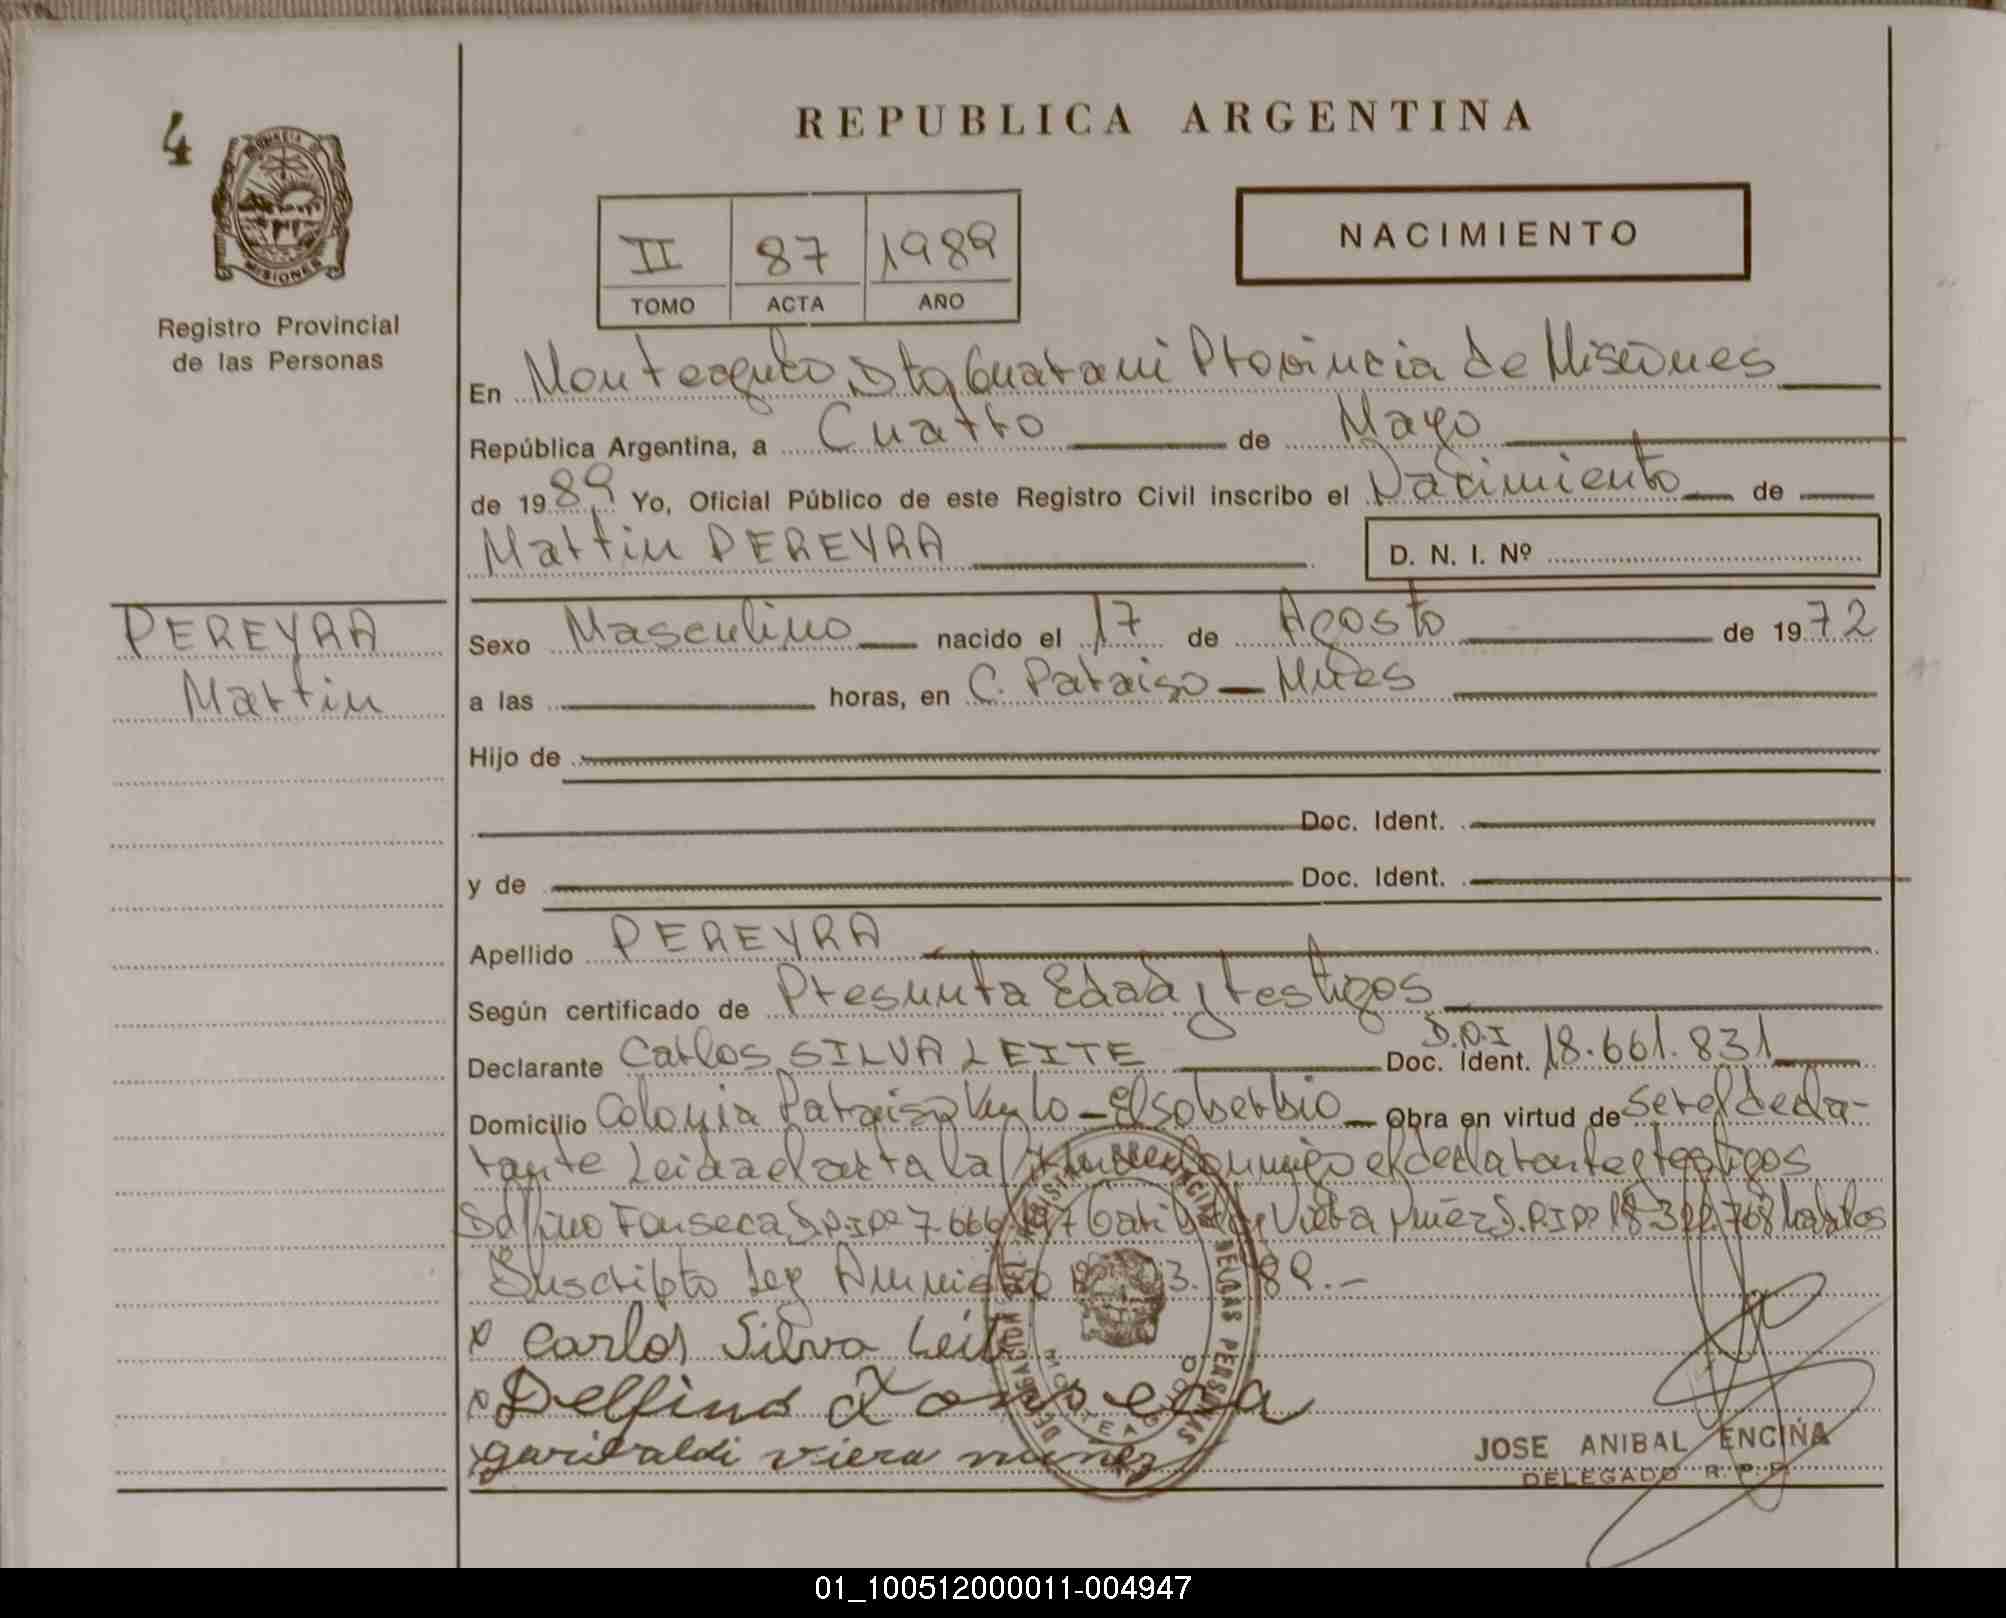 REPUBLICA ARGENTINA
4
PROVINCIA DE
MISIONES
Registro Provincial
de las Personas
II 87 1989
TOMO ACTA AÑO
NACIMIENTO
En Monteagudo Dto Guarani Provincia de Misiones
República Argentina, a Cuatro de Mayo
de 1989 Yo, Oficial Público de este Registro Civil inscribo el Nacimiento de
Martin PEREYRA
D. N. I. Nº
PEREYRA
Martin
Sexo Masculino nacido el 17 de Agosto de 1972
a las horas, en C. Paraiso - Mnes
Hijo de
Doc. Ident.
y de Doc. Ident.
Apellido PEREYRA
Según certificado de Presunta Edad y testigos
Declarante Carlos SILVA LEITE Doc. Ident. D.N.I 18.661.831
Domicilio Colonia Paraiso - El soberbio - Obra en virtud de ser el decla-
rante Leida el acta la conmigo el declarante y testigos
Delfino Fonseca D.N.I Nº 7.666. Viera Nuñez D.N.I Nº habiles
Suscripto Ley Amnistia 89.-
x Carlos Silva Leite
x Delfino Fonseca
garibaldi viera nuñez
JOSE ANIBAL ENCINA
DELEGADO R. P. P.
01_100512000011-004947